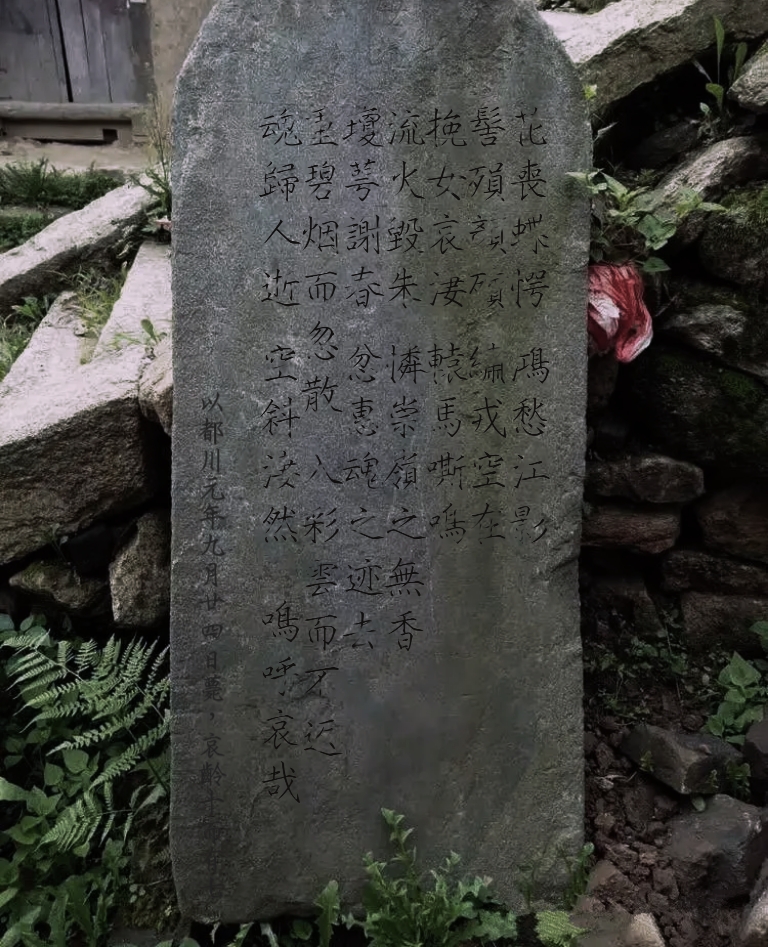 花喪蝶愕 鴻愁江影
髻殞顏殰 繃戎空在
挽女哀淒 轅馬嘶鳴
流火毀朱 憐崇嶺之無香
瓊萼謝春 忿惠魂之迹去
碧烟而忽散 八彩雲而不返
魂歸人逝 空斜淡然 嗚呼哀哉
以都川元年九月廿四日薨，哀齡十